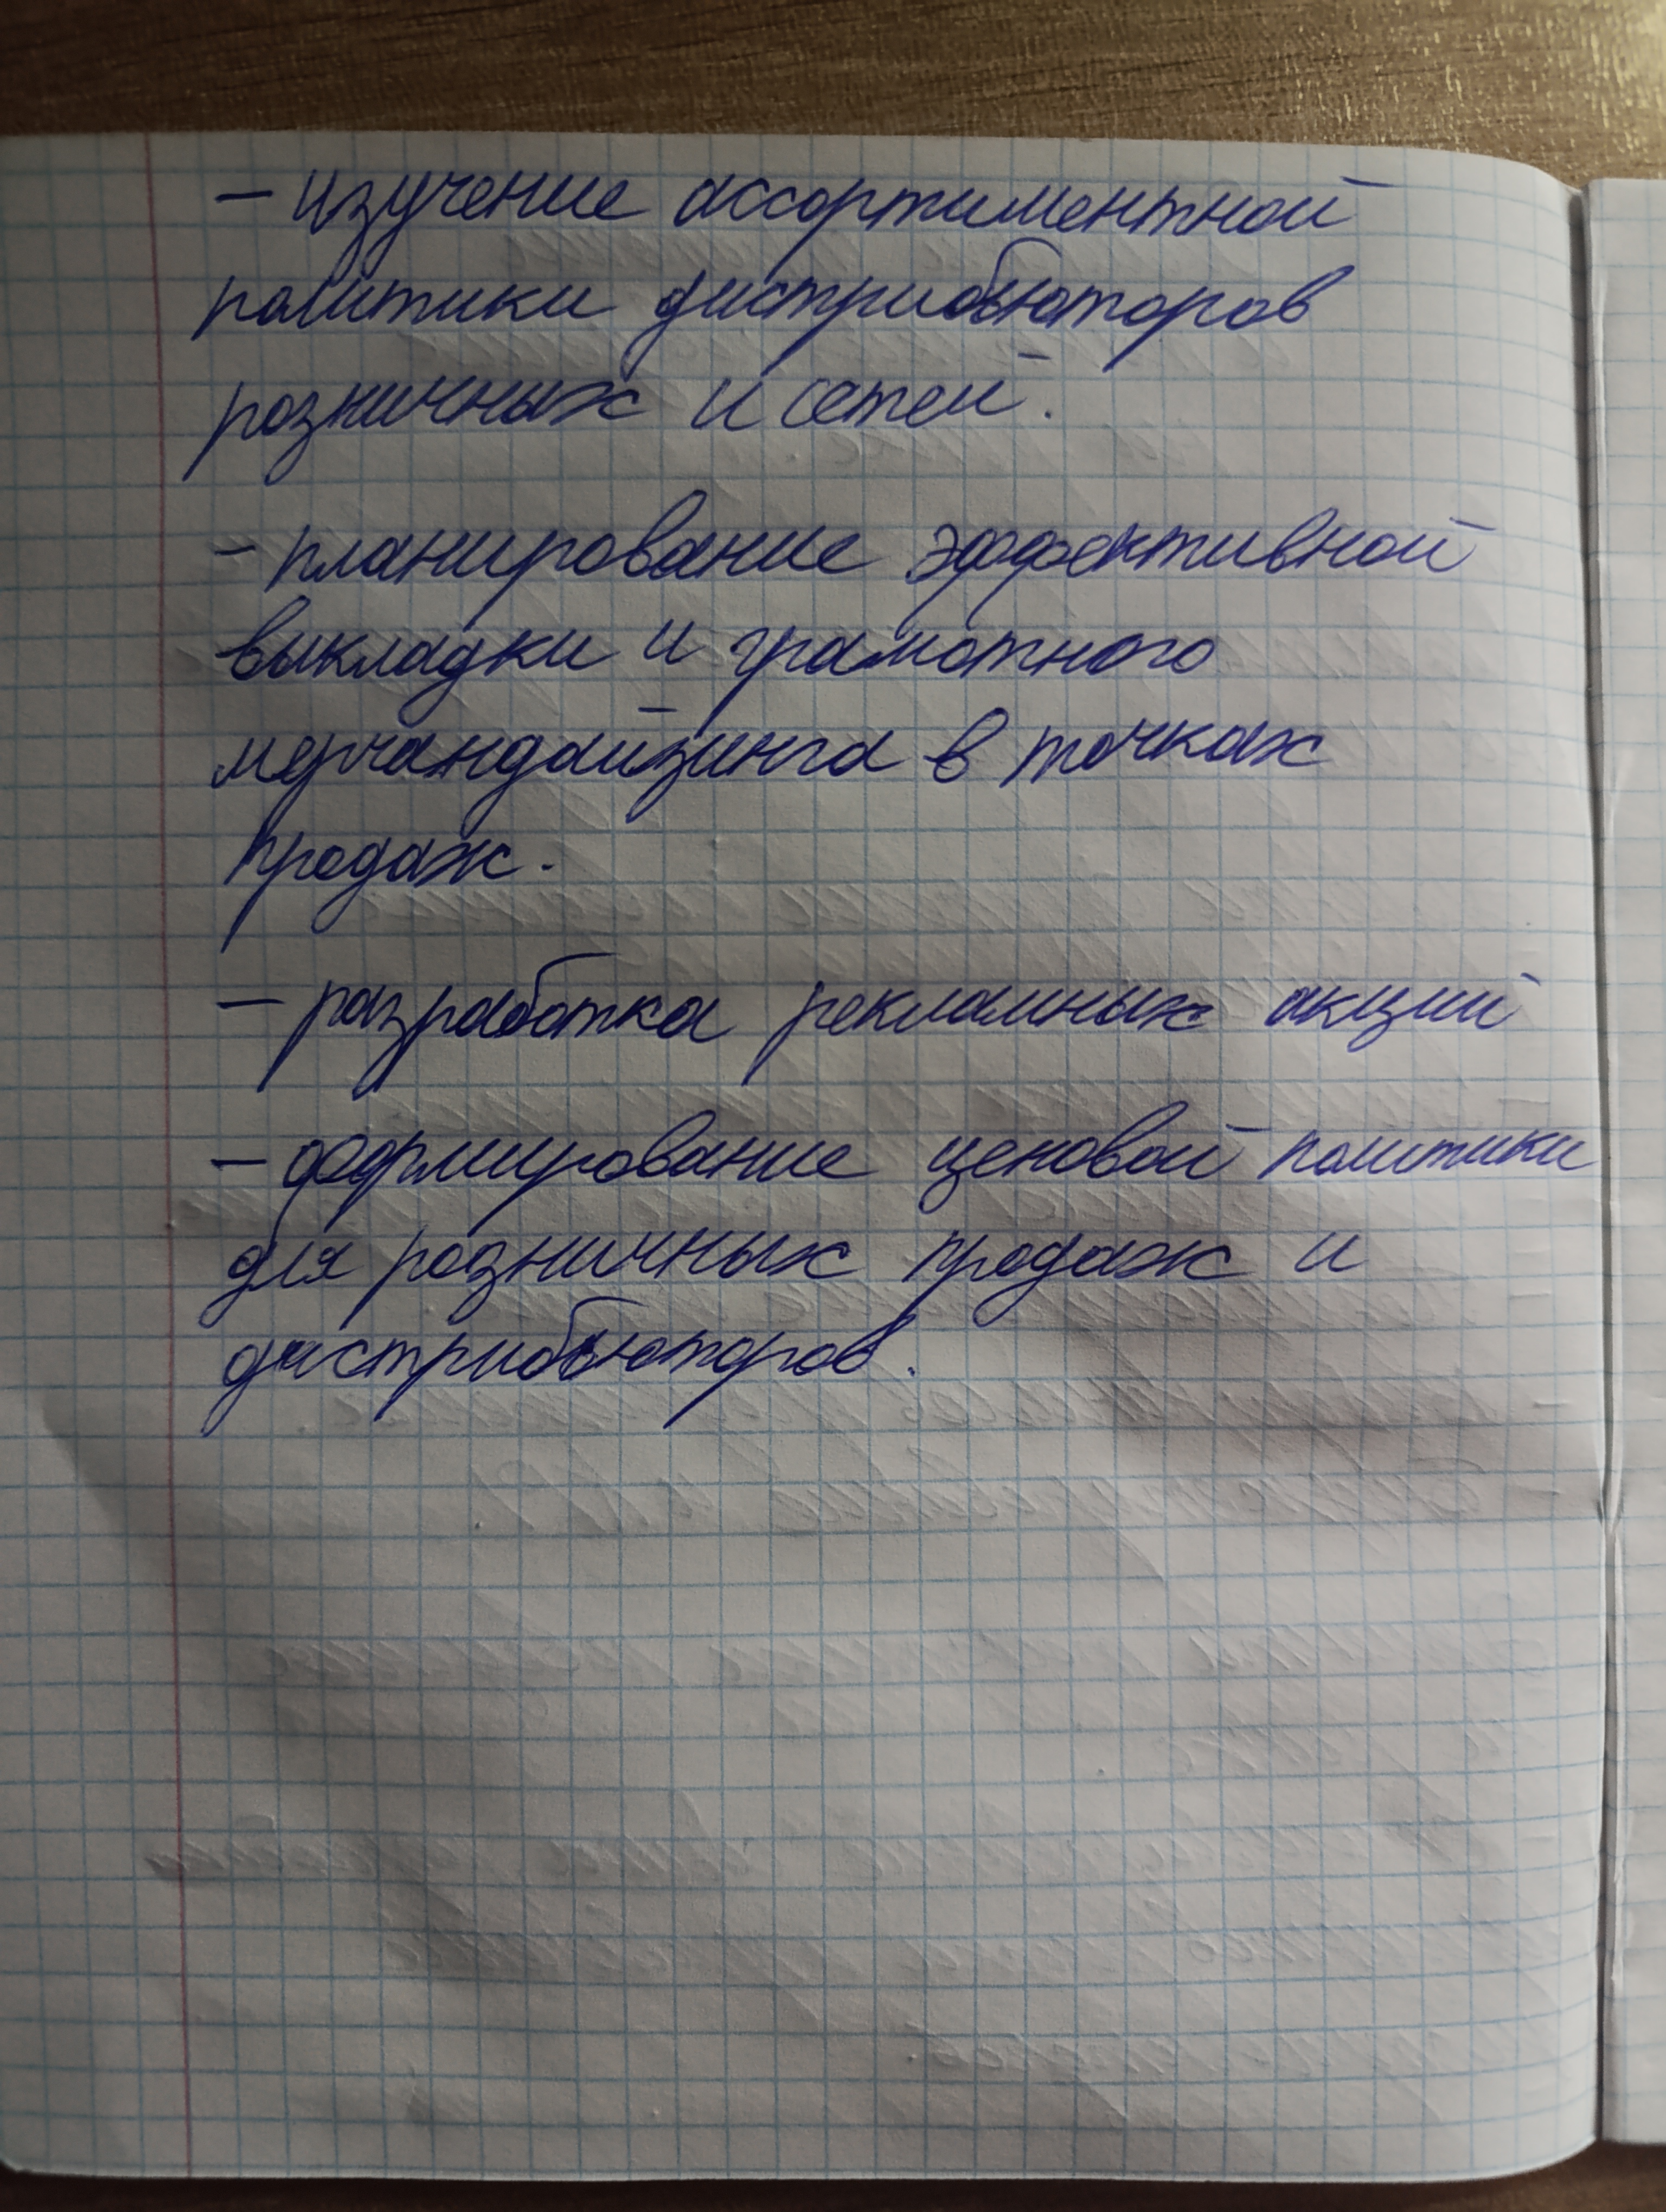 - изучение ассортиментной
политики дистрибьюторов
розничных и сетей.
- планирование эффективной
выкладки и грамотного
мерчандайзинга в точках
продаж.
- разработка рекламных акций
- формирование ценовой политики
для розничных продаж и
дистрибьюторов.